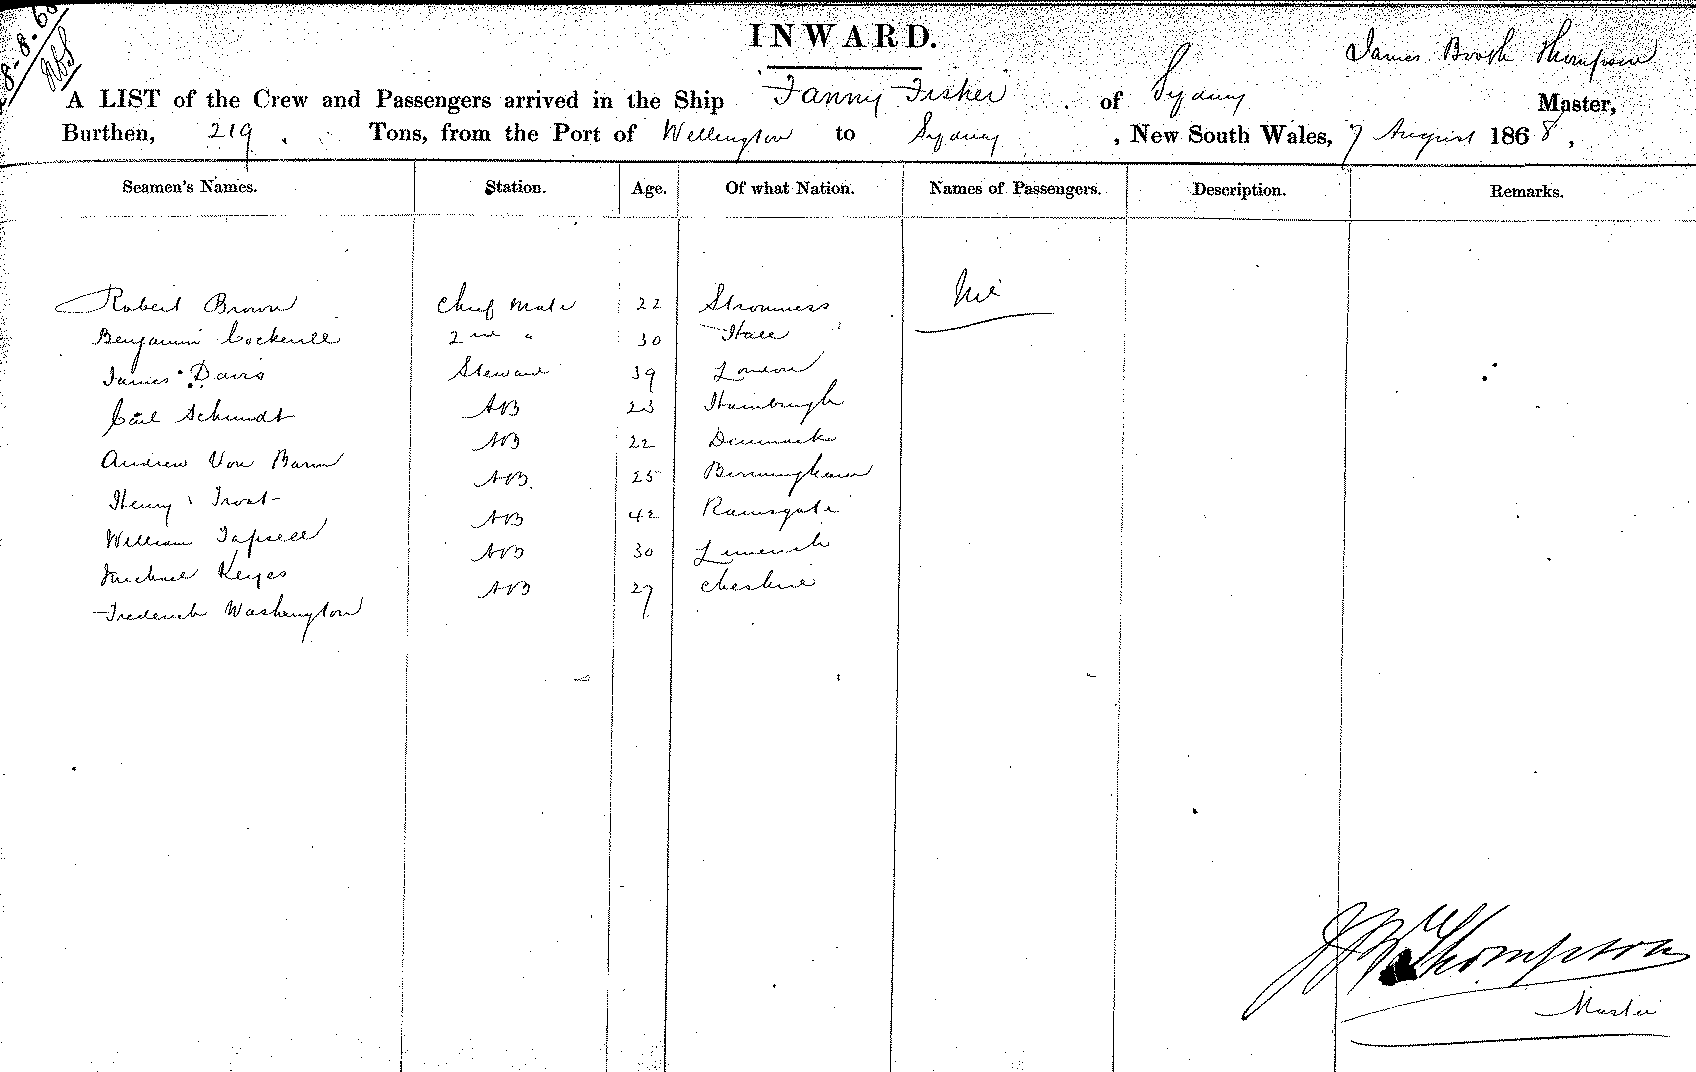 8-8-68
INWARD.
James Booth Thompson
A LIST of the Crew and Passengers arrived in the Ship Fanny Fisher of Sydney Master,
Burthen, 219 Tons, from the Port of Wellington to Sydney, New South Wales, 7 August 1868,
Seamen's Names. Station. Age. Of what Nation. Names of Passengers. Description. Remarks.
Robert Brown Chief Mate 22 Stromness Nil
Benjamin Cockerill 2nd " 30 Hull
James Davis Steward 39 London
Carl Schmidt AB 23 Hamburgh
Andrew Von Barm AB 22 Denmark
Henry Trost AB 25 Birmingham
William Tapsell AB 42 Ramsgate
Michael Keyes AB 30 Limerick
Frederick Washington AB 27 Cheshire
J B Thompson
Master